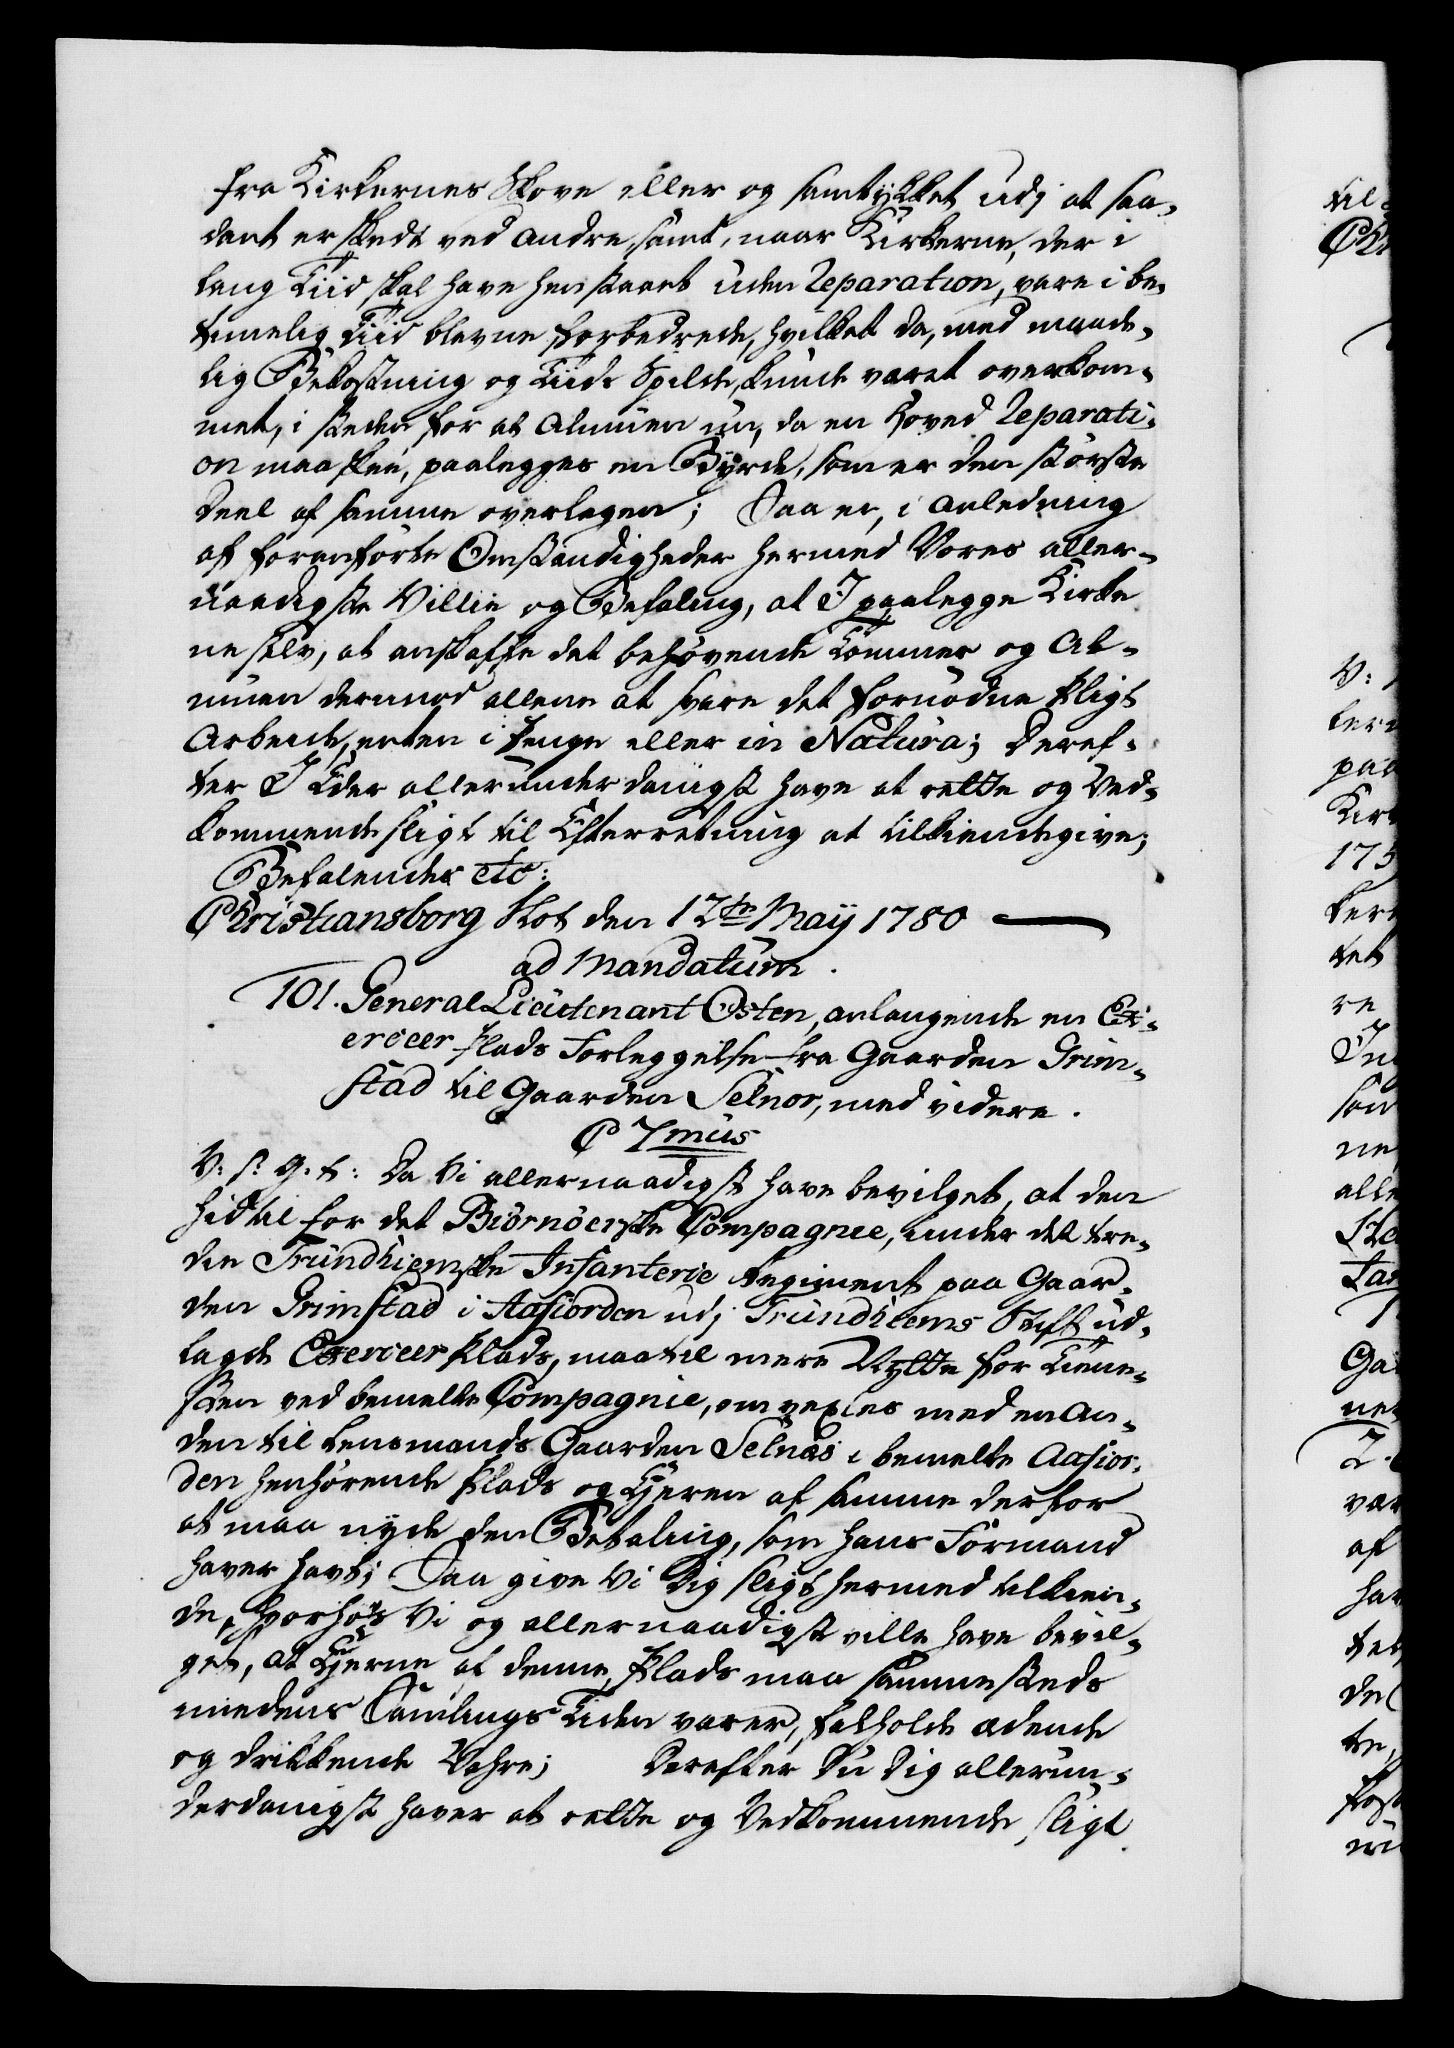 fra Kirkernes Skove eller og samtÿkket udj at saa-
dant er skedt ved andre, samt, naar Kirkerne, der i
lang Tiid skal have henstaaet uden Reparation, vare i be-
timelig Tiid blevne forbedrede, hvilket da, med maade-
lig Bekostning og Tiids Spilde, kunde været overkom-
met, i steden for at Almuen nu, da en Hoved Reparati-
on maa skee, paalegges en Bÿrde, som er den störste
Deel af samme overlegen; Saa er, i Anledning
af foranförte Omstændigheder hermed Vores aller-
naadigste Villie og Befaling, at I paalegge Kirker
ne selv, at anskaffe det behövende Tömmer og Al-
muen dermod allene at svare det fornödne Pligt
Arbeide, enten i Penge eller in Natura; Deref-
ter I Eder allerunderdanigst have at rette og Ved-
kommende sligt til Efterretning at tilkiendegive;
Befalendes etc:
Christiansborg Slot den 12te Maÿ 1780
ad Mandatum.
101. General Lieutenant Osten, anlangende en Ex-
erceer Plads Forleggelse fra Gaarden Grim-
stad til Gaarden Selnor, med videre.
C 7mus
V: s: G: t: Da Vi allernaadigst have bevilget, at den
hidtil for det Biörnöerske Compagnie, under det tre-
die Trundhiemske Infanterie Regiment paa Gaar-
den Grimstad i Aafiorden udj Trundhiems Stift ud-
lagde Exerceer Plads, maa til mere Nÿtte for Tiene-
sten ved bemelte Compagnie, omvexles med en an-
den til Lensmands Gaarden Selnæs i bemelte Aafior-
den henhörende Plads og Ejeren af samme derfor
at maa nÿde den Betaling, som hans Formand
haver havt; Saa give Vi Dig sligt hermed tilkien-
de, hvorhos Vi og allernaadigst ville have bevil-
get, at Ejerne af denne Plads maa sammesteds
medens Samlings Tiden varer, falholde ædende
og drikkende Vahre; Derefter Du Dig allerun-
derdanigst haver at rette og Vedkommende sligt